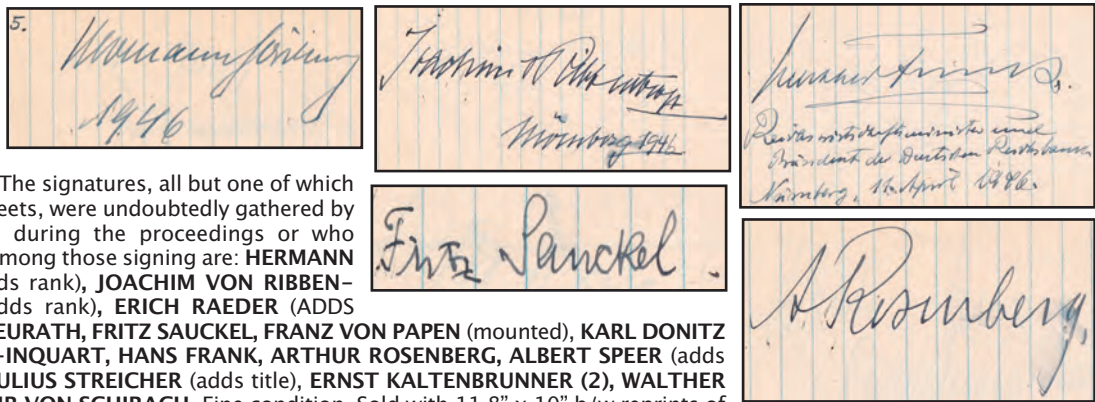 5.
Hermann Göring
1946
Joachim v Ribbentrop
Nürnberg 1946
Walther Funk.
Reichswirtschaftsminister und
Präsident der Deutschen Reichsbank
Nürnberg, 11. April 1946.
Fritz Sauckel.
A Rosenberg,
The signatures, all but one of which
eets, were undoubtedly gathered by
during the proceedings or who
among those signing are: HERMANN
ds rank), JOACHIM VON RIBBEN-
dds rank), ERICH RAEDER (ADDS
EURATH, FRITZ SAUCKEL, FRANZ VON PAPEN (mounted), KARL DONITZ
-INQUART, HANS FRANK, ARTHUR ROSENBERG, ALBERT SPEER (adds
ULIUS STREICHER (adds title), ERNST KALTENBRUNNER (2), WALTHER
UR VON SCHIRACH. Fine condition. Sold with 11 8" x 10" b/w reprints of